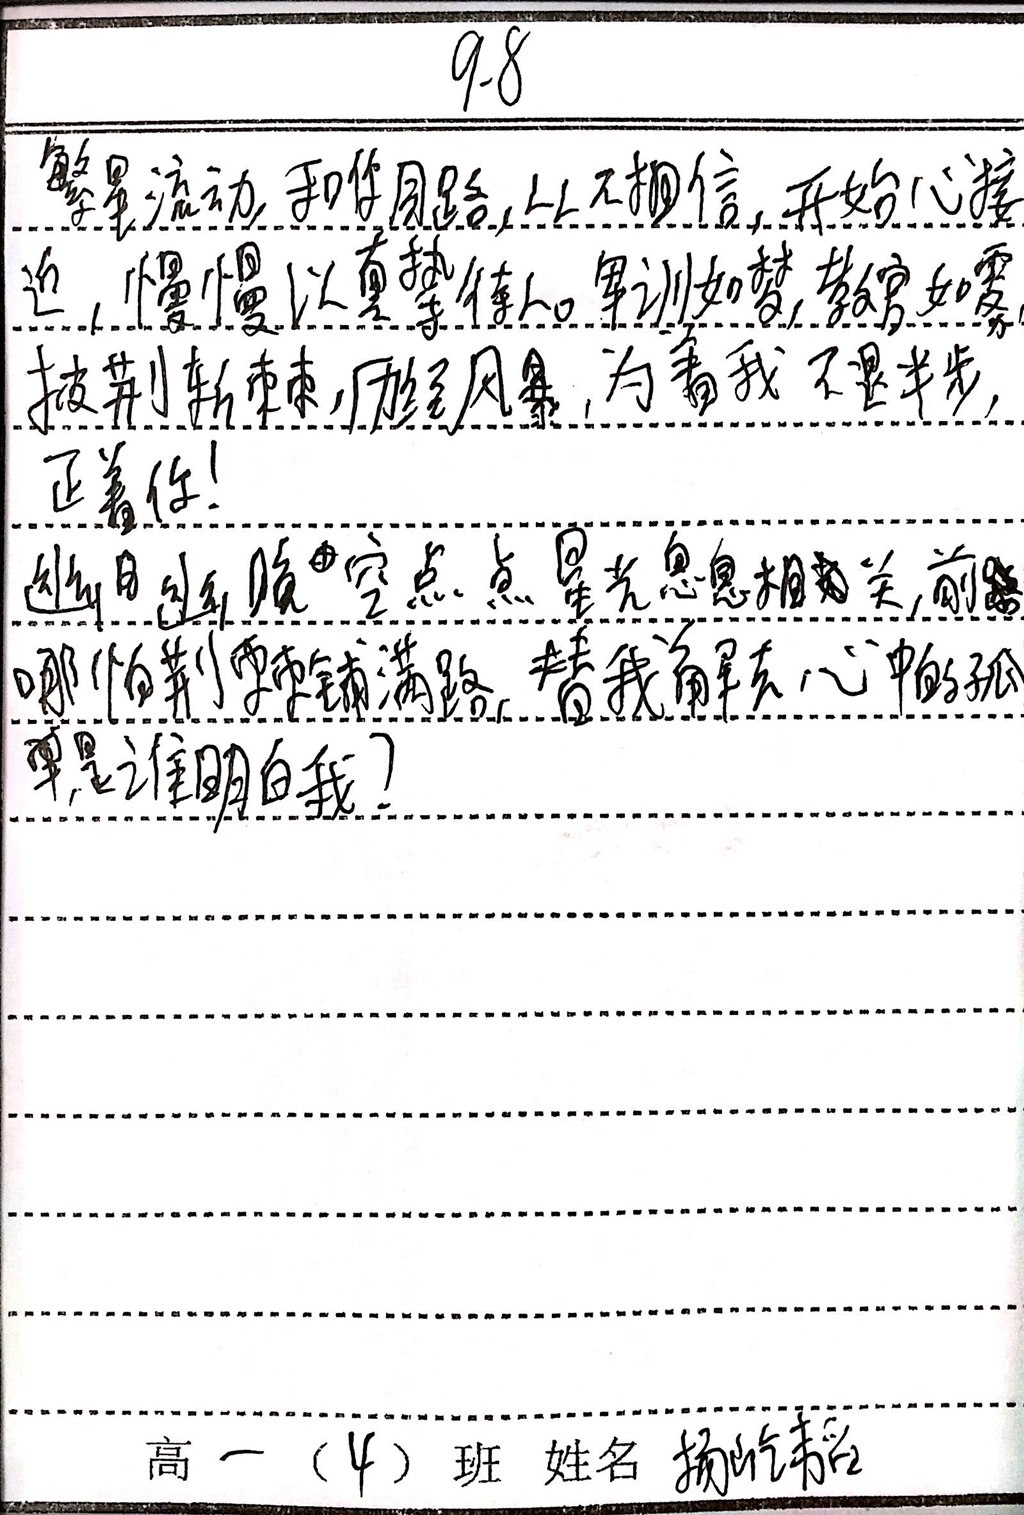 9.8
繁星流动,和你同路,从不相信,开始心接
近,慢慢以真挚待人。军训如梦,教官如雾,
披荆斩棘,历经风暴,为着我不退半步,
正着你!
遥遥晚空点点星光息息相关,前路
哪怕荆棘铺满路,替我解决心中的孤
单,是谁明白我?
高一(4)班 姓名